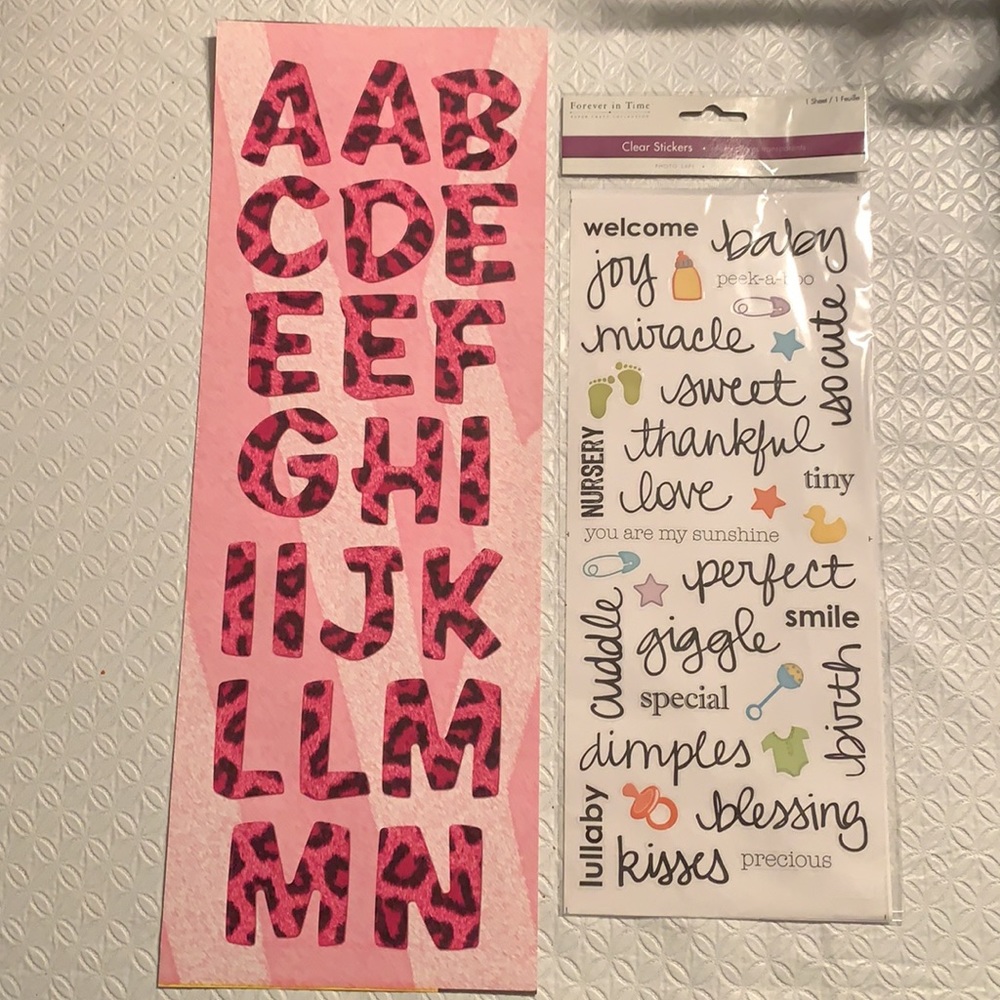 A A B
C D E
E E F
G H I
I I J K
L L M
M N
Forever in Time
1 Sheet / 1 Feuille
Clear Stickers •
welcome
baby
joy
peek-a-boo
miracle
so cute
sweet
thankful
NURSERY
tiny
love
you are my sunshine
perfect
cuddle
smile
giggle
special
birth
dimples
lullaby
blessing
kisses
precious